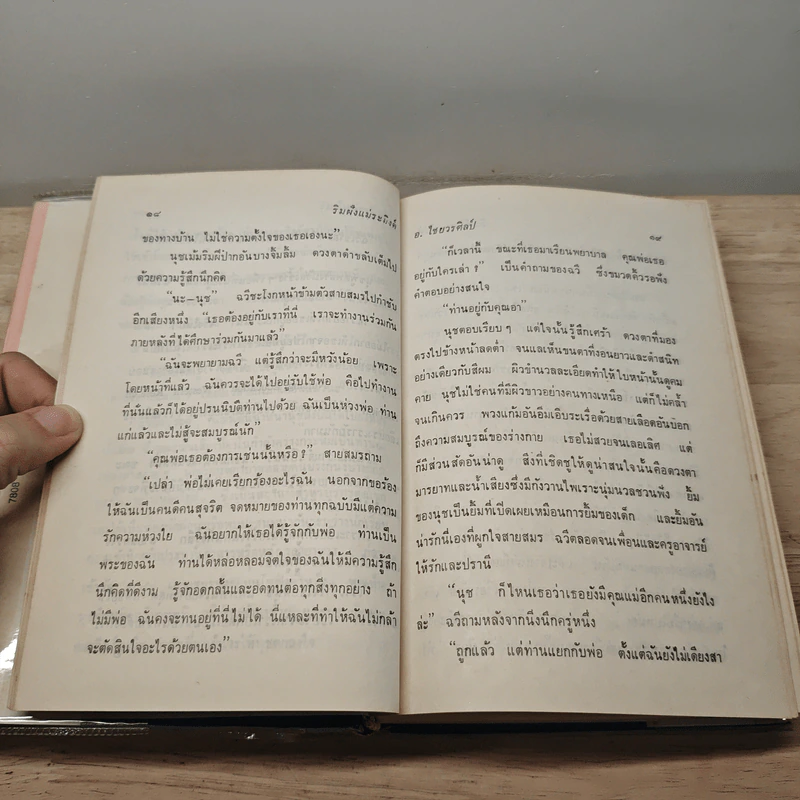 ๑๘ ริมฝั่งแม่ระมิงค์
ของทางบ้าน ไม่ใช่ความตั้งใจของเธอเองนะ”
นุชเม้มริมฝีปากอันบางจิ้มลิ้ม ดวงตาดำขลับเต็มไป
ด้วยความรู้สึกนึกคิด
“นะ—นุช” ฉวีชะโงกหน้าข้ามตัวสายสมรไปกำชับ
อีกเสียงหนึ่ง “เธอต้องอยู่กับเราที่นี่ เราจะทำงานร่วมกัน
ภายหลังที่ได้ศึกษาร่วมกันมาแล้ว”
“ฉันจะพยายามฉวี แต่รู้สึกว่าจะมีหวังน้อย เพราะ
โดยหน้าที่แล้ว ฉันควรจะได้ไปอยู่รับใช้พ่อ คือไปทำงาน
ที่นั่นแล้วก็ได้อยู่ปรนนิบัติท่านไปด้วย ฉันเป็นห่วงพ่อ ท่าน
แก่แล้วและไม่สู้จะสมบูรณ์นัก”
“คุณพ่อเธอต้องการเช่นนั้นหรือ?” สายสมรถาม
“เปล่า พ่อไม่เคยเรียกร้องอะไรฉัน นอกจากขอร้อง
ให้ฉันเป็นคนดีคนสุจริต จดหมายของท่านทุกฉบับมีแต่ความ
รักความห่วงใย ฉันอยากให้เธอได้รู้จักกับพ่อ ท่านเป็น
พระของฉัน ท่านได้หล่อหลอมจิตใจของฉันให้มีความรู้สึก
นึกคิดที่ดีงาม รู้จักอดกลั้นและอดทนต่อทุกสิ่งทุกอย่าง ถ้า
ไม่มีพ่อ ฉันคงจะทนอยู่ที่นี่ไม่ได้ นี่แหละที่ทำให้ฉันไม่กล้า
จะตัดสินใจอะไรด้วยตนเอง”
อ. ไชยวรศิลป์ ๑๙
“ก็เวลานี้ ขณะที่เธอมาเรียนพยาบาล คุณพ่อเธอ
อยู่กับใครเล่า?” เป็นคำถามของฉวี ซึ่งขมวดคิ้วรอฟัง
คำตอบอย่างสนใจ
“ท่านอยู่กับคุณอา”
นุชตอบเรียบๆ แต่ใจนั้นรู้สึกเศร้า ดวงตาที่มอง
ตรงไปข้างหน้าลดต่ำ จนแลเห็นขนตาที่งอนยาวและดำสนิท
อย่างเดียวกับสีผม ผิวขำนวลละเอียดทำให้ใบหน้านั้นดูคม
คาย นุชไม่ใช่คนที่มีผิวขาวอย่างคนทางเหนือ แต่ก็ไม่คล้ำ
จนเกินควร พวงแก้มอันอิ่มเอิบระเรื่อด้วยสายเลือดอันบอก
ถึงความสมบูรณ์ของร่างกาย เธอไม่สวยจนเลอเลิศ แต่
ก็มีส่วนสัดอันน่าดู สิ่งที่เชิดชูให้ดูน่าสนใจนั้นคือดวงตา
มารยาทและน้ำเสียงซึ่งมีกังวานไพเราะนุ่มนวลชวนฟัง ยิ้ม
ของนุชเป็นยิ้มที่เปิดเผยเหมือนการยิ้มของเด็ก และยิ้มอัน
น่ารักนี่เองที่ผูกใจสายสมร ฉวีตลอดจนเพื่อนและครูอาจารย์
ให้รักและปรานี
“นุช ก็ไหนเธอว่าเธอยังมีคุณแม่อีกคนหนึ่งยังไง
ล่ะ” ฉวีถามหลังจากนิ่งนึกครู่หนึ่ง
“ถูกแล้ว แต่ท่านแยกกับพ่อ ตั้งแต่ฉันยังไม่เดียงสา
7808